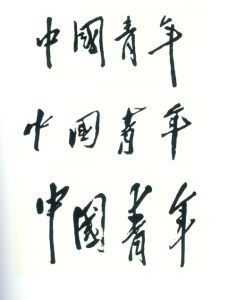 中國青年
中国青年
中國青年